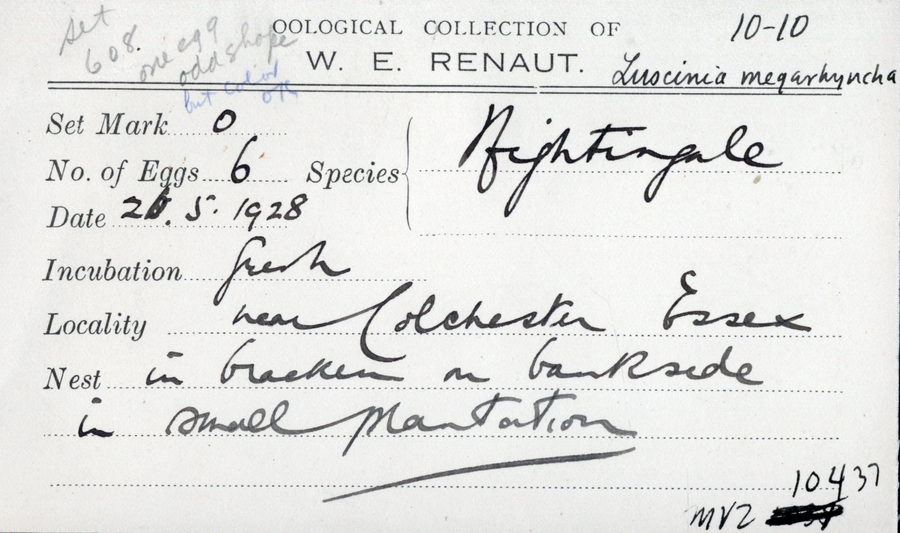 Set
608.
one egg
odd shape
but color
OK
OOLOGICAL COLLECTION OF
W. E. RENAUT.
10-10
Luscinia megarhyncha
Set Mark 0
No. of Eggs 6 Species Nightingale
Date 5. 1928
Incubation fresh
Locality near Colchester Essex
Nest in bracken on bankside
in small plantation
10437
MVZ